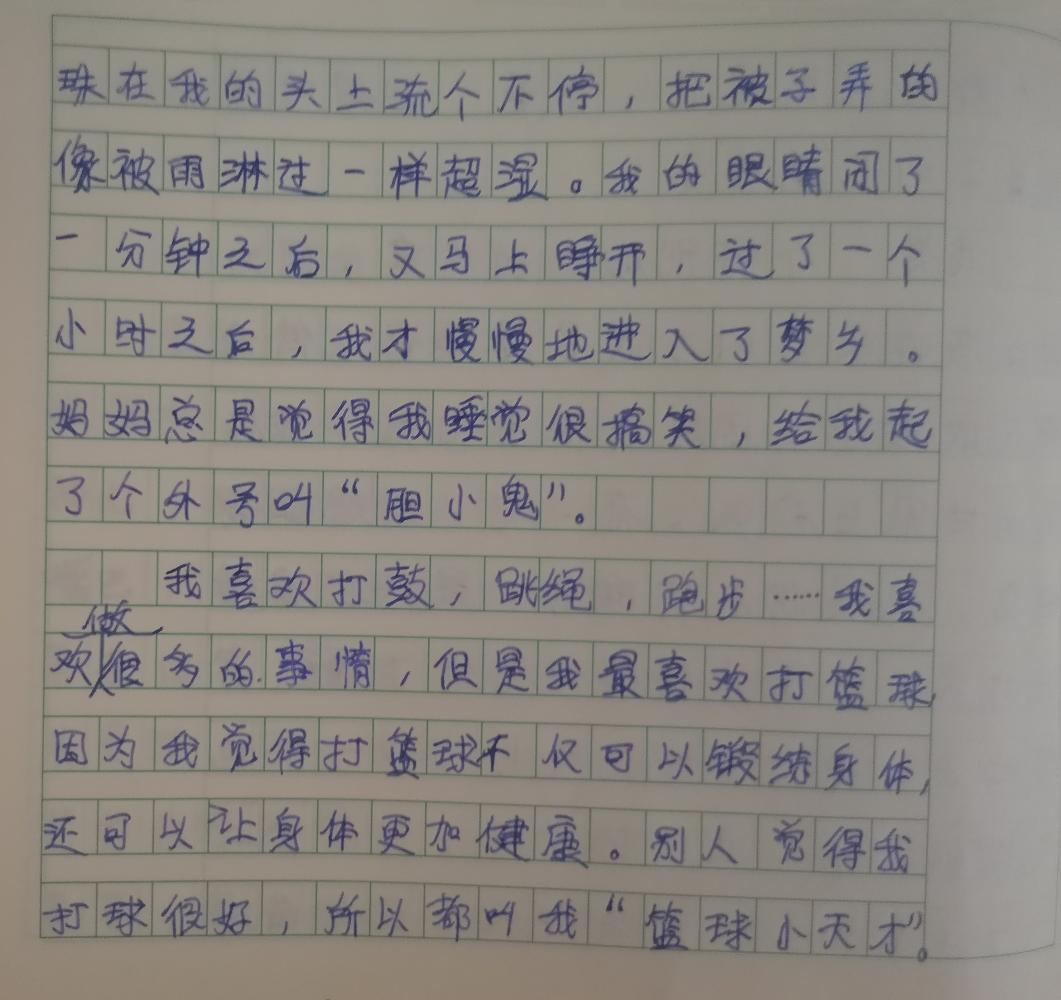 珠在我的头上流个不停，把被子弄的
像被雨淋过一样超湿。我的眼睛闭了
一分钟之后，又马上睁开，过了一个
小时之后，我才慢慢地进入了梦乡。
妈妈总是觉得我睡觉很搞笑，给我起
了个外号叫“胆小鬼”。
我喜欢打鼓，跳绳，跑步……我喜
欢做很多的事情，但是我最喜欢打篮球，
因为我觉得打篮球不仅可以锻练身体，
还可以让身体更加健康。别人觉得我
打球很好，所以都叫我“篮球小天才”。